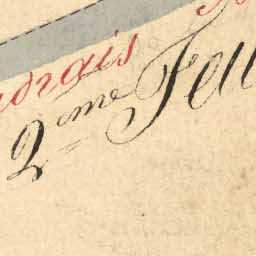 drais
2me Feu